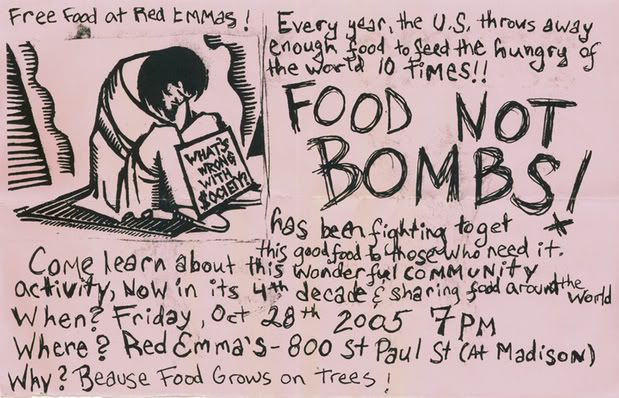 Free Food at Red Emmas!
WHAT'S
WRONG
WITH
$OCIETY?
Every year, the U.S. throws away
enough food to feed the hungry of
the world 10 times!!
FOOD NOT
BOMBS!
has been fighting to get
this good food to those who need it.
Come learn about this wonderful COMMUNITY
activity, Now in its 4th decade & sharing food around the world
When? Friday, Oct 28th 2005 7PM
Where? Red Emma's - 800 St Paul St (At Madison)
Why? Beause Food Grows on Trees!